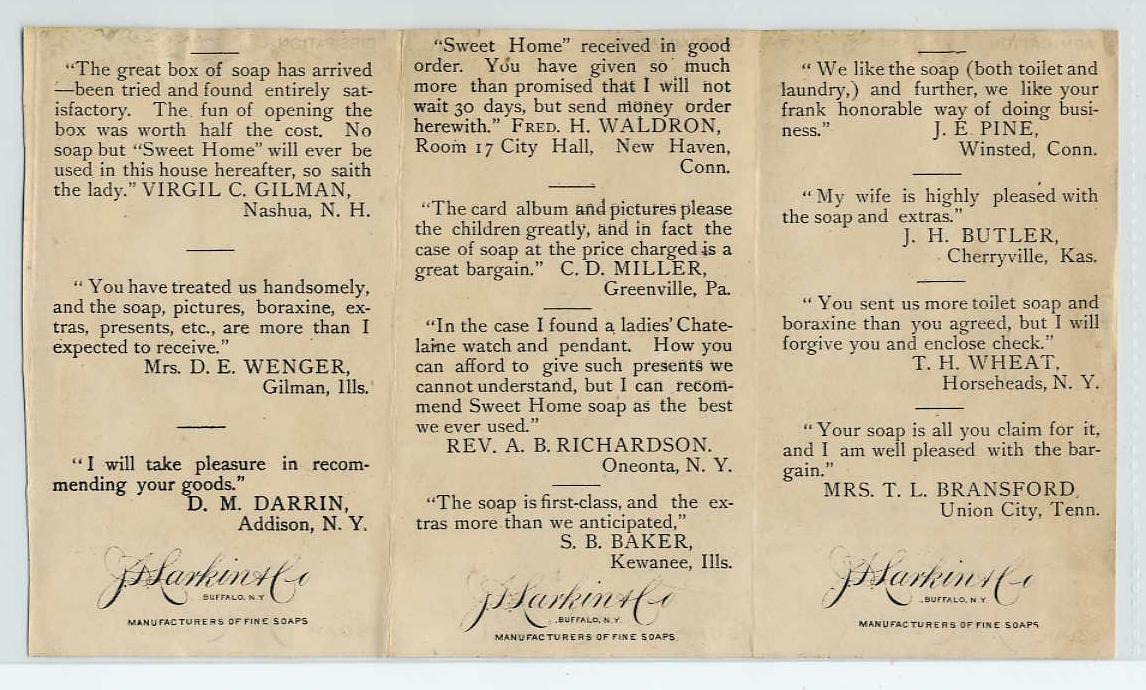 “The great box of soap has arrived
—been tried and found entirely sat-
isfactory. The fun of opening the
box was worth half the cost. No
soap but “Sweet Home” will ever be
used in this house hereafter, so saith
the lady.” VIRGIL C. GILMAN,
Nashua, N. H.
“ You have treated us handsomely,
and the soap, pictures, boraxine, ex-
tras, presents, etc., are more than I
expected to receive.”
Mrs. D. E. WENGER,
Gilman, Ills.
“I will take pleasure in recom-
mending your goods.”
D. M. DARRIN,
Addison, N. Y.
J. D. Larkin & Co
BUFFALO, N.Y.
MANUFACTURERS OF FINE SOAPS
“Sweet Home” received in good
order. You have given so much
more than promised that I will not
wait 30 days, but send money order
herewith.” FRED. H. WALDRON,
Room 17 City Hall, New Haven,
Conn.
“The card album and pictures please
the children greatly, and in fact the
case of soap at the price charged is a
great bargain.” C. D. MILLER,
Greenville, Pa.
“In the case I found a ladies’ Chate-
laine watch and pendant. How you
can afford to give such presents we
cannot understand, but I can recom-
mend Sweet Home soap as the best
we ever used.”
REV. A. B. RICHARDSON.
Oneonta, N. Y.
“The soap is first-class, and the ex-
tras more than we anticipated,”
S. B. BAKER,
Kewanee, Ills.
J. D. Larkin & Co
BUFFALO, N.Y.
MANUFACTURERS OF FINE SOAPS
“ We like the soap (both toilet and
laundry,) and further, we like your
frank honorable way of doing busi-
ness.” J. E. PINE,
Winsted, Conn.
“ My wife is highly pleased with
the soap and extras.”
J. H. BUTLER,
Cherryville, Kas.
“ You sent us more toilet soap and
boraxine than you agreed, but I will
forgive you and enclose check.”
T. H. WHEAT,
Horseheads, N. Y.
“ Your soap is all you claim for it,
and I am well pleased with the bar-
gain.”
MRS. T. L. BRANSFORD,
Union City, Tenn.
J. D. Larkin & Co
BUFFALO, N.Y.
MANUFACTURERS OF FINE SOAPS